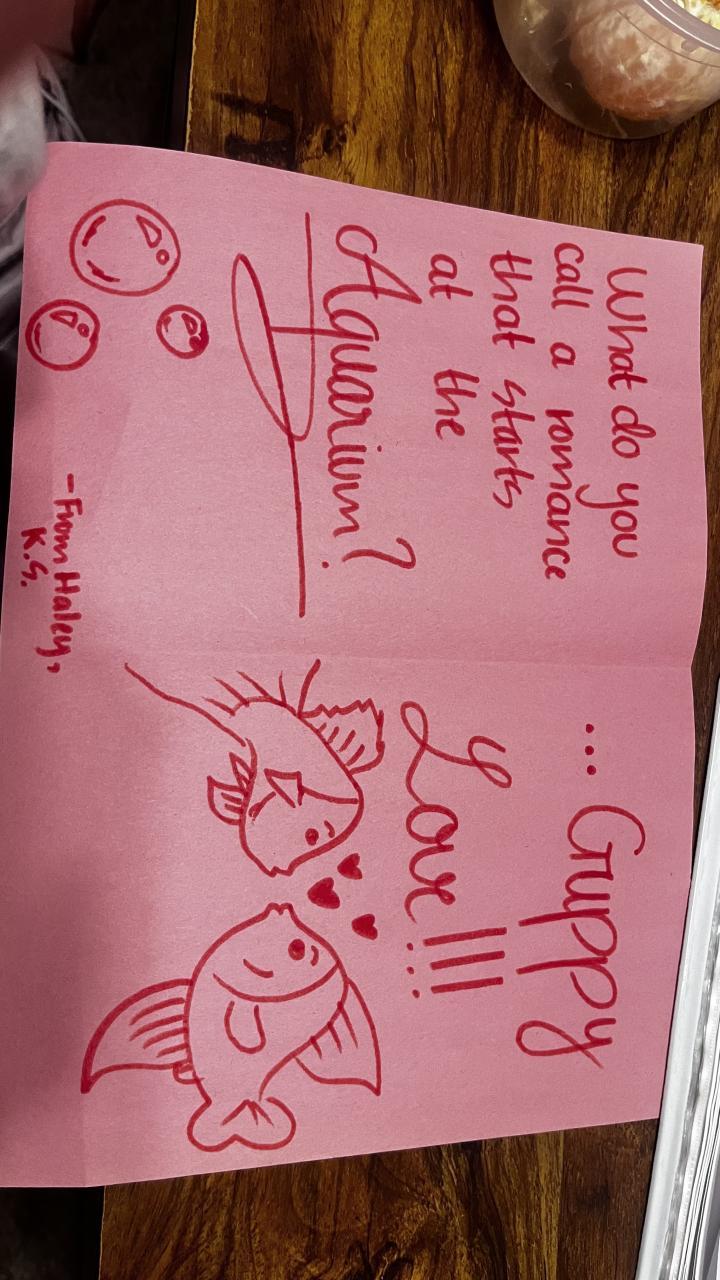 What do you
call a romance
that starts
at the
Aquarium?
-From Haley,
K.S.
... Guppy
Love!!!